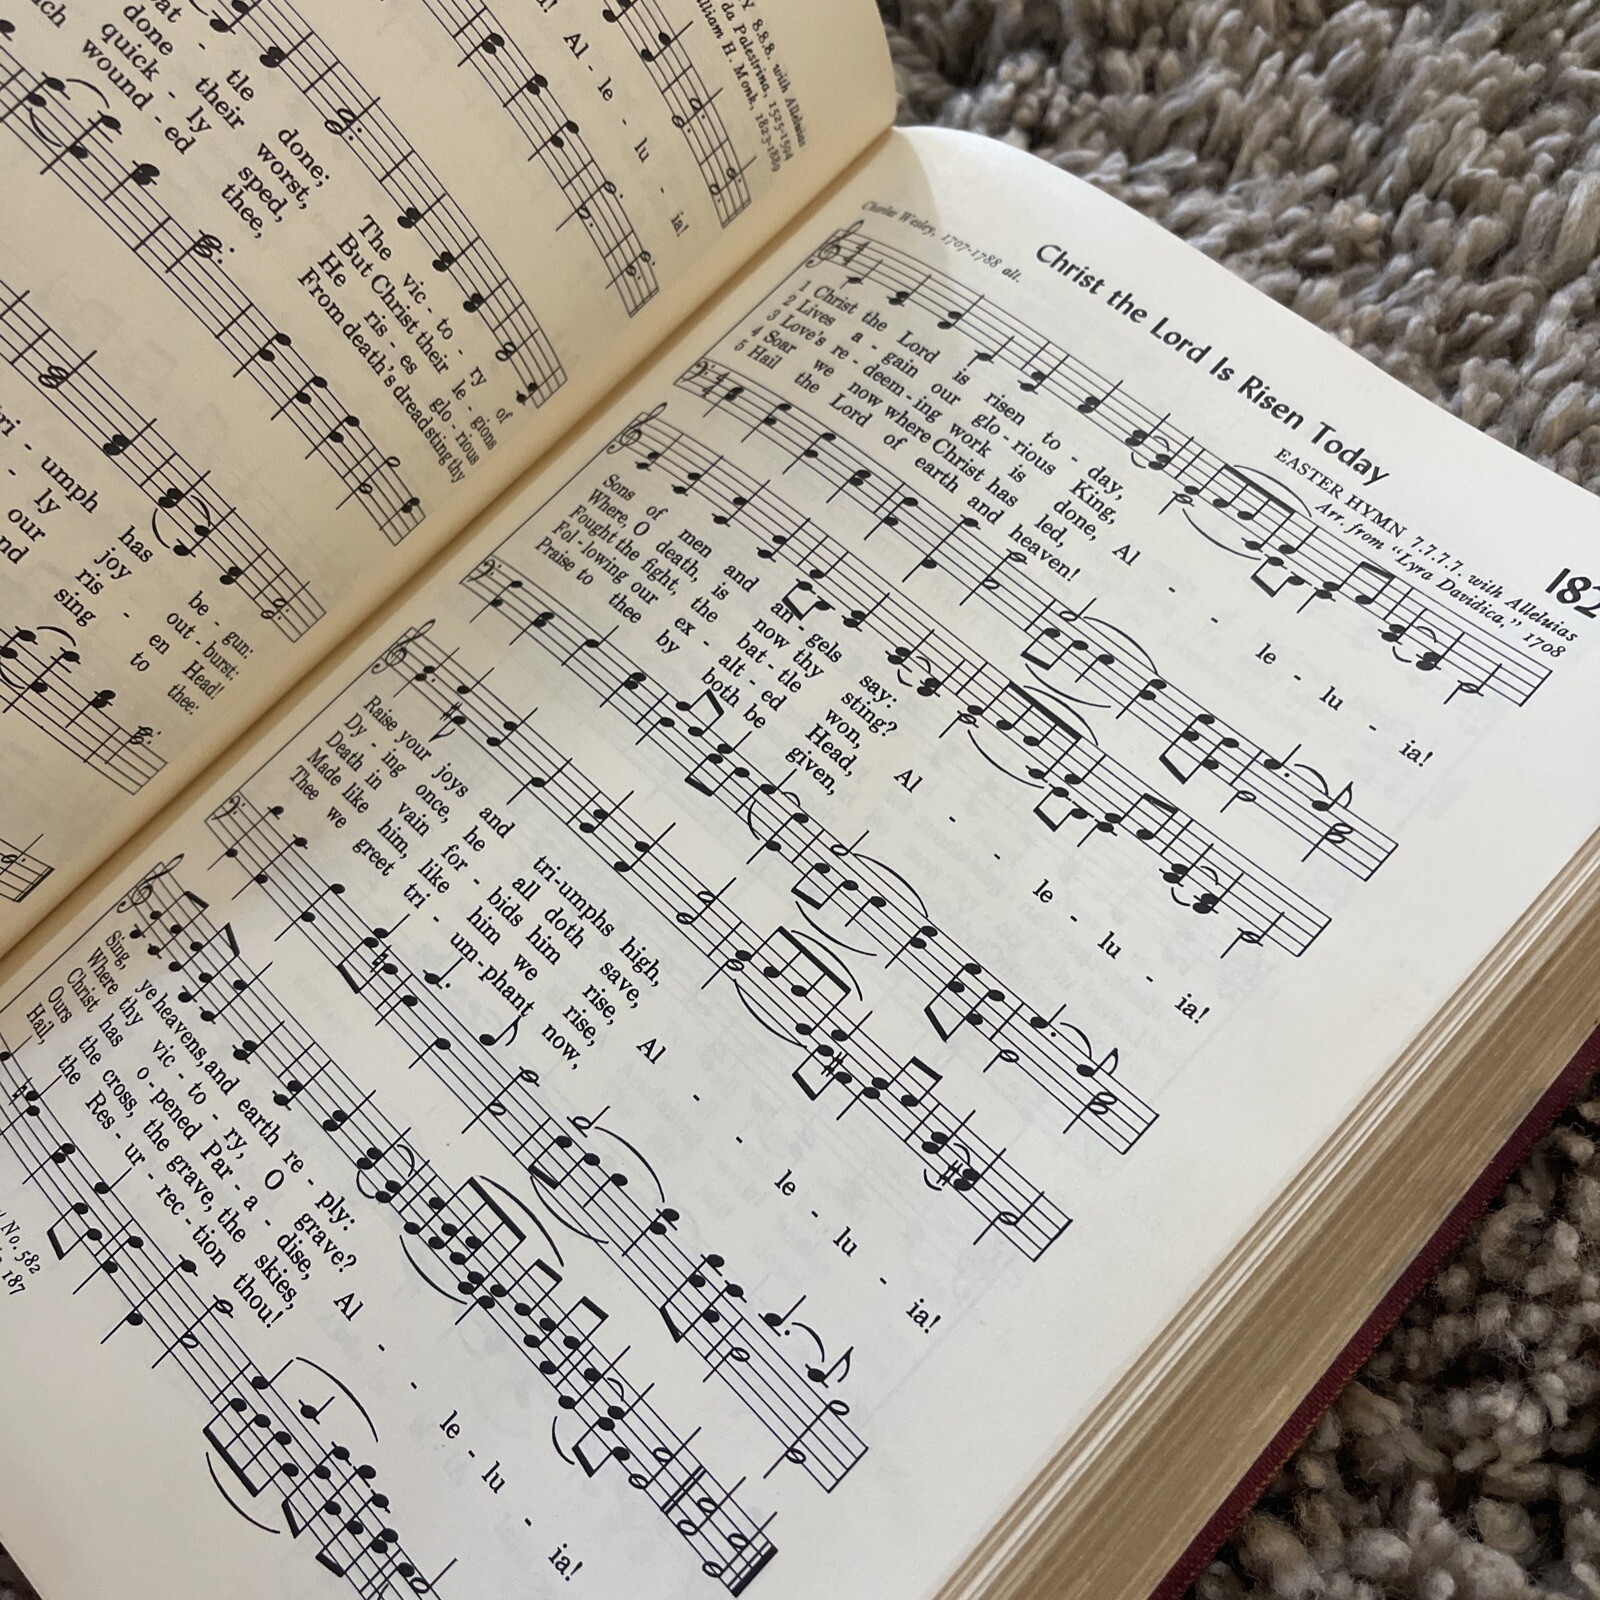 y 8.8.8. with Alleluias
da Palestrina, 1525-1594
William H. Monk, 1823-1889
Al - le - lu - ia!
tle done; The vic - to - ry of
done their worst, But Christ their le - gions
quick - ly sped, He ris - es glo - rious
wound - ed thee, From death's dread sting thy
umph has be - gun:
ly joy out - burst:
our ris - en Head!
sing to thee:
No. 582
187
Christ the Lord Is Risen Today
182
Charles Wesley, 1707-1788 alt.
EASTER HYMN 7.7.7.7. with Alleluias
Arr. from "Lyra Davidica," 1708
1 Christ the Lord is risen to - day, Al - - - le - lu - ia!
2 Lives a - gain our glo - rious King,
3 Love's re - deem - ing work is done,
4 Soar we now where Christ has led,
5 Hail the Lord of earth and heaven!
Sons of men and an - gels say: Al - - - le - lu - ia!
Where, O death, is now thy sting?
Fought the fight, the bat - tle won,
Fol - lowing our ex - alt - ed Head,
Praise to thee by both be given,
Raise your joys and tri-umphs high, Al - - - le - lu - ia!
Dy - ing once, he all doth save,
Death in vain for - bids him rise,
Made like him, like him we rise,
Thee we greet tri - um-phant now,
Sing, ye heavens, and earth re - ply: Al - - - le - lu - ia!
Where thy vic - to - ry, O grave?
Christ has o - pened Par - a - dise,
Ours the cross, the grave, the skies,
Hail, the Res - ur - rec - tion thou!